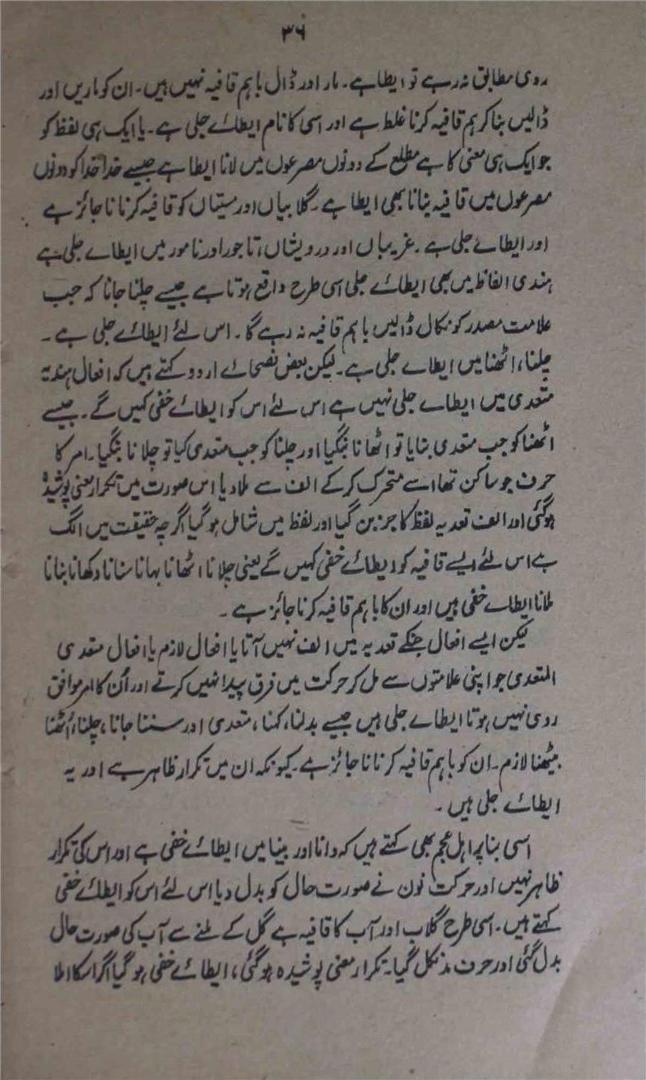 ۳۶
روی مطابق نہ رہے تو ایطا ہے۔ مار اور ڈال باہم قافیہ نہیں ہیں۔ ان کو ماریں اور
ڈالیں بنا کر ہم قافیہ کرنا غلط ہے اور اسی کا نام ایطائے جلی ہے۔ یا ایک ہی لفظ کو
جو ایک ہی معنی کا ہے مطلع کے دونوں مصرعوں میں لانا ایطا ہے جیسے خدا خدا کو دونوں
مصرعوں میں قافیہ بنانا بھی ایطا ہے۔ گلابیاں اور مستیاں کو قافیہ کرنا ناجائز ہے
اور ایطائے جلی ہے۔ غریباں اور درویشاں، تاجور اور نامور میں ایطاے جلی ہے
ہندی الفاظ میں بھی ایطائے جلی اسی طرح واقع ہوتا ہے جیسے چلنا جانا کہ جب
علامت مصدر کو نکال ڈالیں باہم قافیہ نہ رہے گا۔ اس لئے ایطائے جلی ہے۔
چلنا، اٹھنا میں ایطاے جلی ہے۔ لیکن بعض فصحائے اردو کہتے ہیں کہ افعال ہندیہ
متعدی میں ایطاے جلی نہیں ہے اس لئے اس کو ایطائے خفی کہیں گے۔ جیسے
اٹھنا کو جب متعدی بنایا تو اٹھانا بنگیا اور چلنا کو جب متعدی کیا تو چلانا بنگیا۔ امر کا
حرف جو ساکن تھا اسے متحرک کر کے الف سے ملا دیا اس صورت میں تکرار معنی پوشیدہ
ہوگئی اور الف تعدیہ لفظ کا جز بن گیا اور لفظ میں شامل ہو گیا اگرچہ حقیقت میں الگ
ہے اس لئے ایسے قافیہ کو ایطائے خفی کہیں گے یعنی چلانا اٹھانا بہانا سنانا دکھانا بنانا
ملانا ایطاے خفی ہیں اور ان کا باہم قافیہ کرنا جائز ہے۔
لیکن ایسے افعال جنکے تعدیہ میں الف نہیں آتا یا افعال لازم یا افعال متعدی
المتعدی جو اپنی علامتوں سے مل کر حرکت میں فرق پیدا نہیں کرتے اور اُن کا امر موافق
روی نہیں ہوتا ایطاے جلی ہیں جیسے بدلنا، کہنا، متعدی اور سننا جانا، چلنا، اُٹھنا
بیٹھنا لازم۔ ان کو باہم قافیہ کرنا ناجائز ہے۔ کیونکہ ان میں تکرار ظاہر ہے اور یہ
ایطائے جلی ہیں۔
اسی بنا پر اہل عجم بھی کہتے ہیں کہ دانا اور بینا میں ایطائے خفی ہے اور اس کی تکرار
ظاہر نہیں اور حرکت نون نے صورت حال کو بدل دیا اس لئے اس کو ایطائے خفی
کہتے ہیں۔ اسی طرح گلاب اور آب کا قافیہ ہے گل کے ملنے سے آب کی صورت حال
بدل گئی اور حرف مد نکل گیا۔ تکرار معنی پوشیدہ ہو گئی، ایطائے خفی ہو گیا اگر اسکا املا